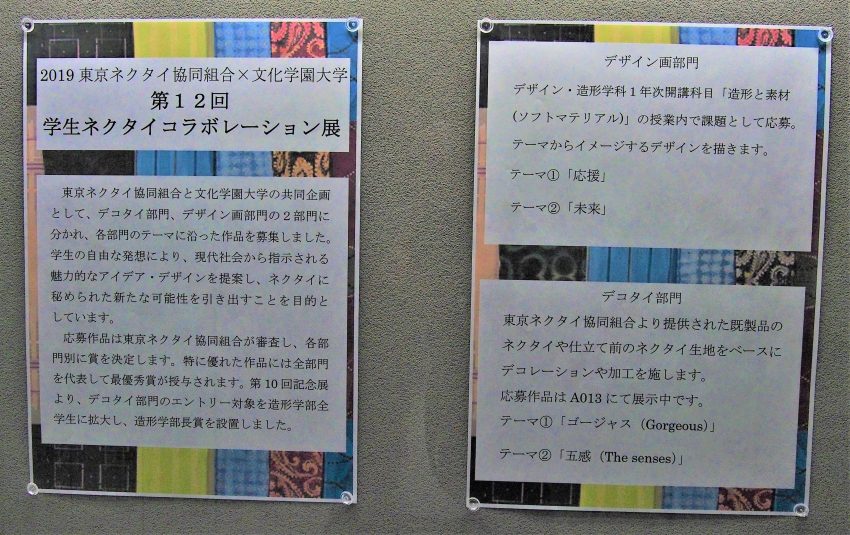 2019 東京ネクタイ協同組合×文化学園大学
第１２回
学生ネクタイコラボレーション展
東京ネクタイ協同組合と文化学園大学の共同企画
として、デコタイ部門、デザイン画部門の２部門に
分かれ、各部門のテーマに沿った作品を募集しました。
学生の自由な発想により、現代社会から指示される
魅力的なアイデア・デザインを提案し、ネクタイに
秘められた新たな可能性を引き出すことを目的と
しています。
応募作品は東京ネクタイ協同組合が審査し、各部
門別に賞を決定します。特に優れた作品には全部門
を代表して最優秀賞が授与されます。第 10 回記念展
より、デコタイ部門のエントリー対象を造形学部全
学生に拡大し、造形学部長賞を設置しました。
デザイン画部門
デザイン・造形学科１年次開講科目「造形と素材
(ソフトマテリアル)」の授業内で課題として応募。
テーマからイメージするデザインを描きます。
テーマ①「応援」
テーマ②「未来」
デコタイ部門
東京ネクタイ協同組合より提供された既製品の
ネクタイや仕立て前のネクタイ生地をベースに
デコレーションや加工を施します。
応募作品は A013 にて展示中です。
テーマ①「ゴージャス（Gorgeous）」
テーマ②「五感（The senses）」